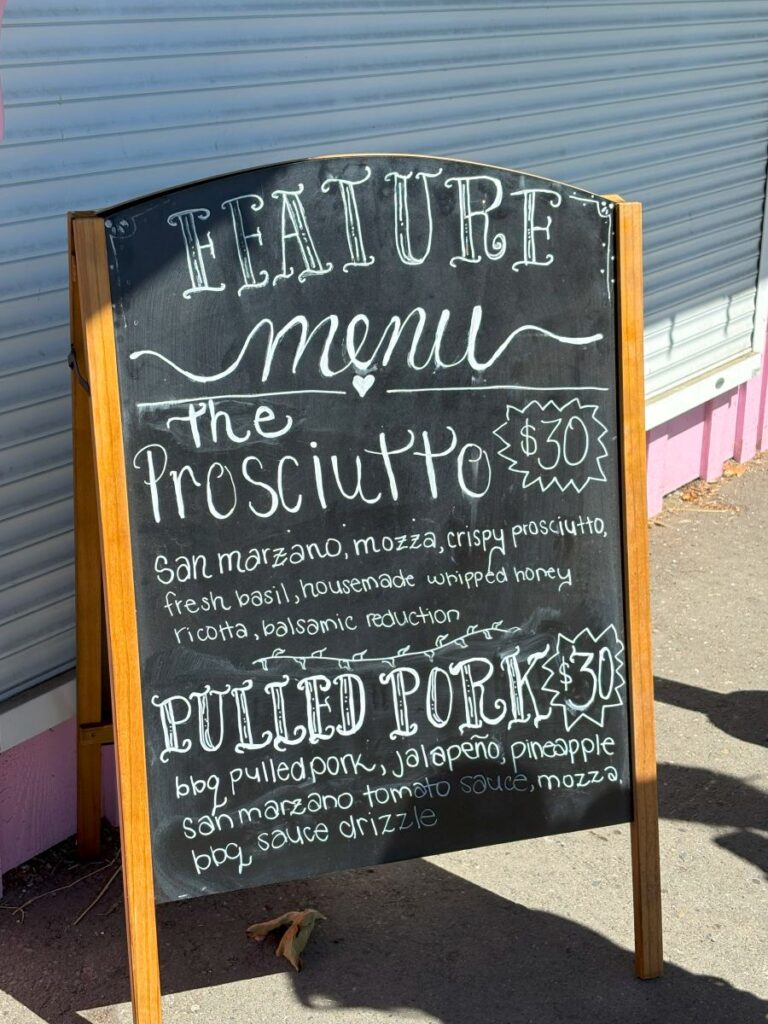 FEATURE
menu
the
Prosciutto $30
san marzano, mozza, crispy prosciutto,
fresh basil, housemade whipped honey
ricotta, balsamic reduction
PULLED PORK $30
bbq pulled pork, jalapeño, pineapple
san marzano tomato sauce, mozza,
bbq sauce drizzle